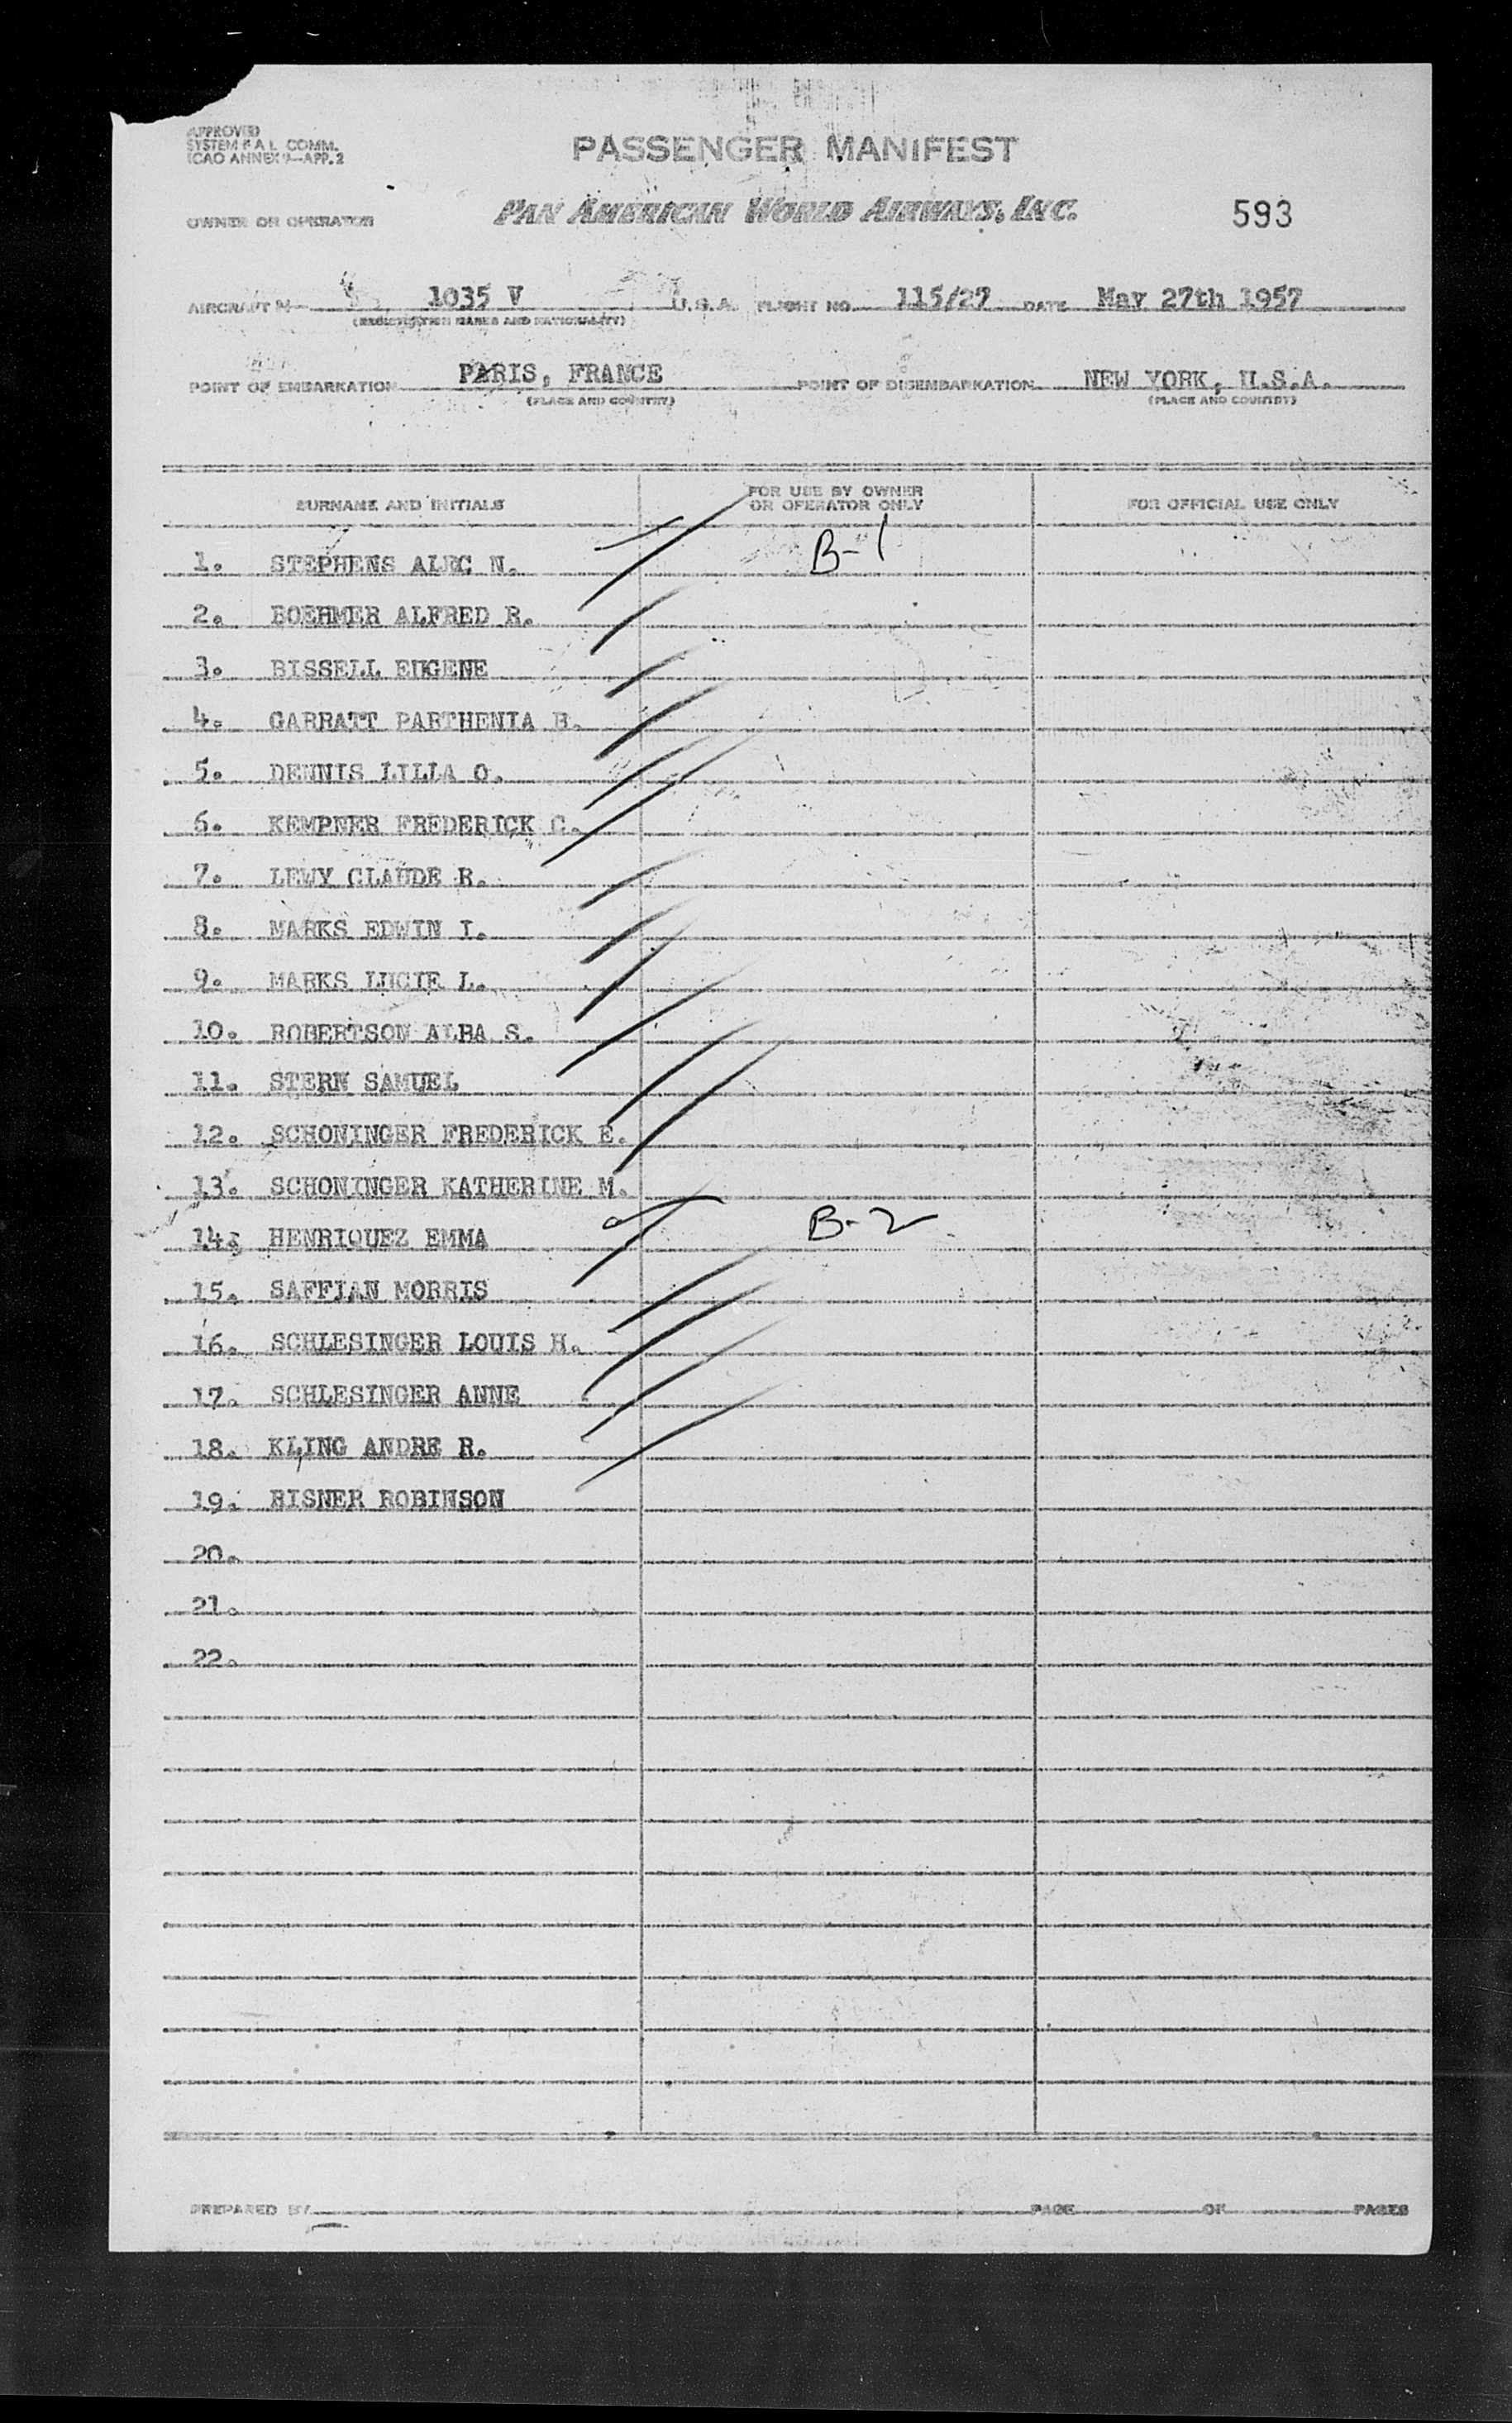 APPROVED
SYSTEM F A L COMM.
ICAO ANNEX 9—APP. 2
PASSENGER MANIFEST
OWNER OR OPERATOR PAN AMERICAN WORLD AIRWAYS, INC. 593
AIRCRAFT 1035 V U.S.A. FLIGHT NO. 115/27 DATE May 27th 1957
(REGISTRATION MARKS AND NATIONALITY)
POINT OF EMBARKATION PARIS, FRANCE POINT OF DISEMBARKATION NEW YORK, U.S.A.
(PLACE AND COUNTRY) (PLACE AND COUNTRY)
SURNAME AND INITIALS FOR USE BY OWNER OR OPERATOR ONLY FOR OFFICIAL USE ONLY
1. STEPHENS ALEC N. B-1
2. BOEHMER ALFRED R.
3. BISSELL EUGENE
4. GARRATT PARTHENIA B.
5. DENNIS LILLA O.
6. KEMPNER FREDERICK C.
7. LEWY CLAUDE R.
8. MARKS EDWIN I.
9. MARKS LUCIE L.
10. ROBERTSON ALBA S.
11. STERN SAMUEL
12. SCHONINGER FREDERICK E.
13. SCHONINGER KATHERINE M.
14. HENRIQUEZ EMMA B-2
15. SAFFIAN MORRIS
16. SCHLESINGER LOUIS H.
17. SCHLESINGER ANNE
18. KLING ANDRE R.
19. RISNER ROBINSON
20.
21.
22.
PREPARED BY PAGE OF PAGES